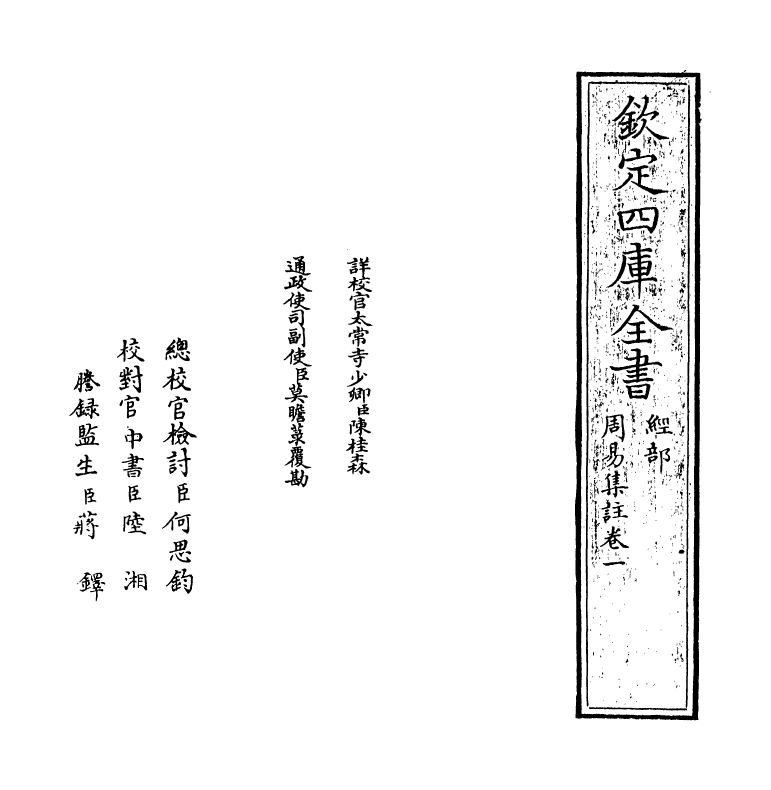 欽定四庫全書
經部
周易集註卷一
詳校官太常寺少卿臣陳桂森
通政使司副使臣莫瞻菉覆勘
總校官檢討臣何思鈞
校對官中書臣陸湘
謄錄監生臣蔣鐸